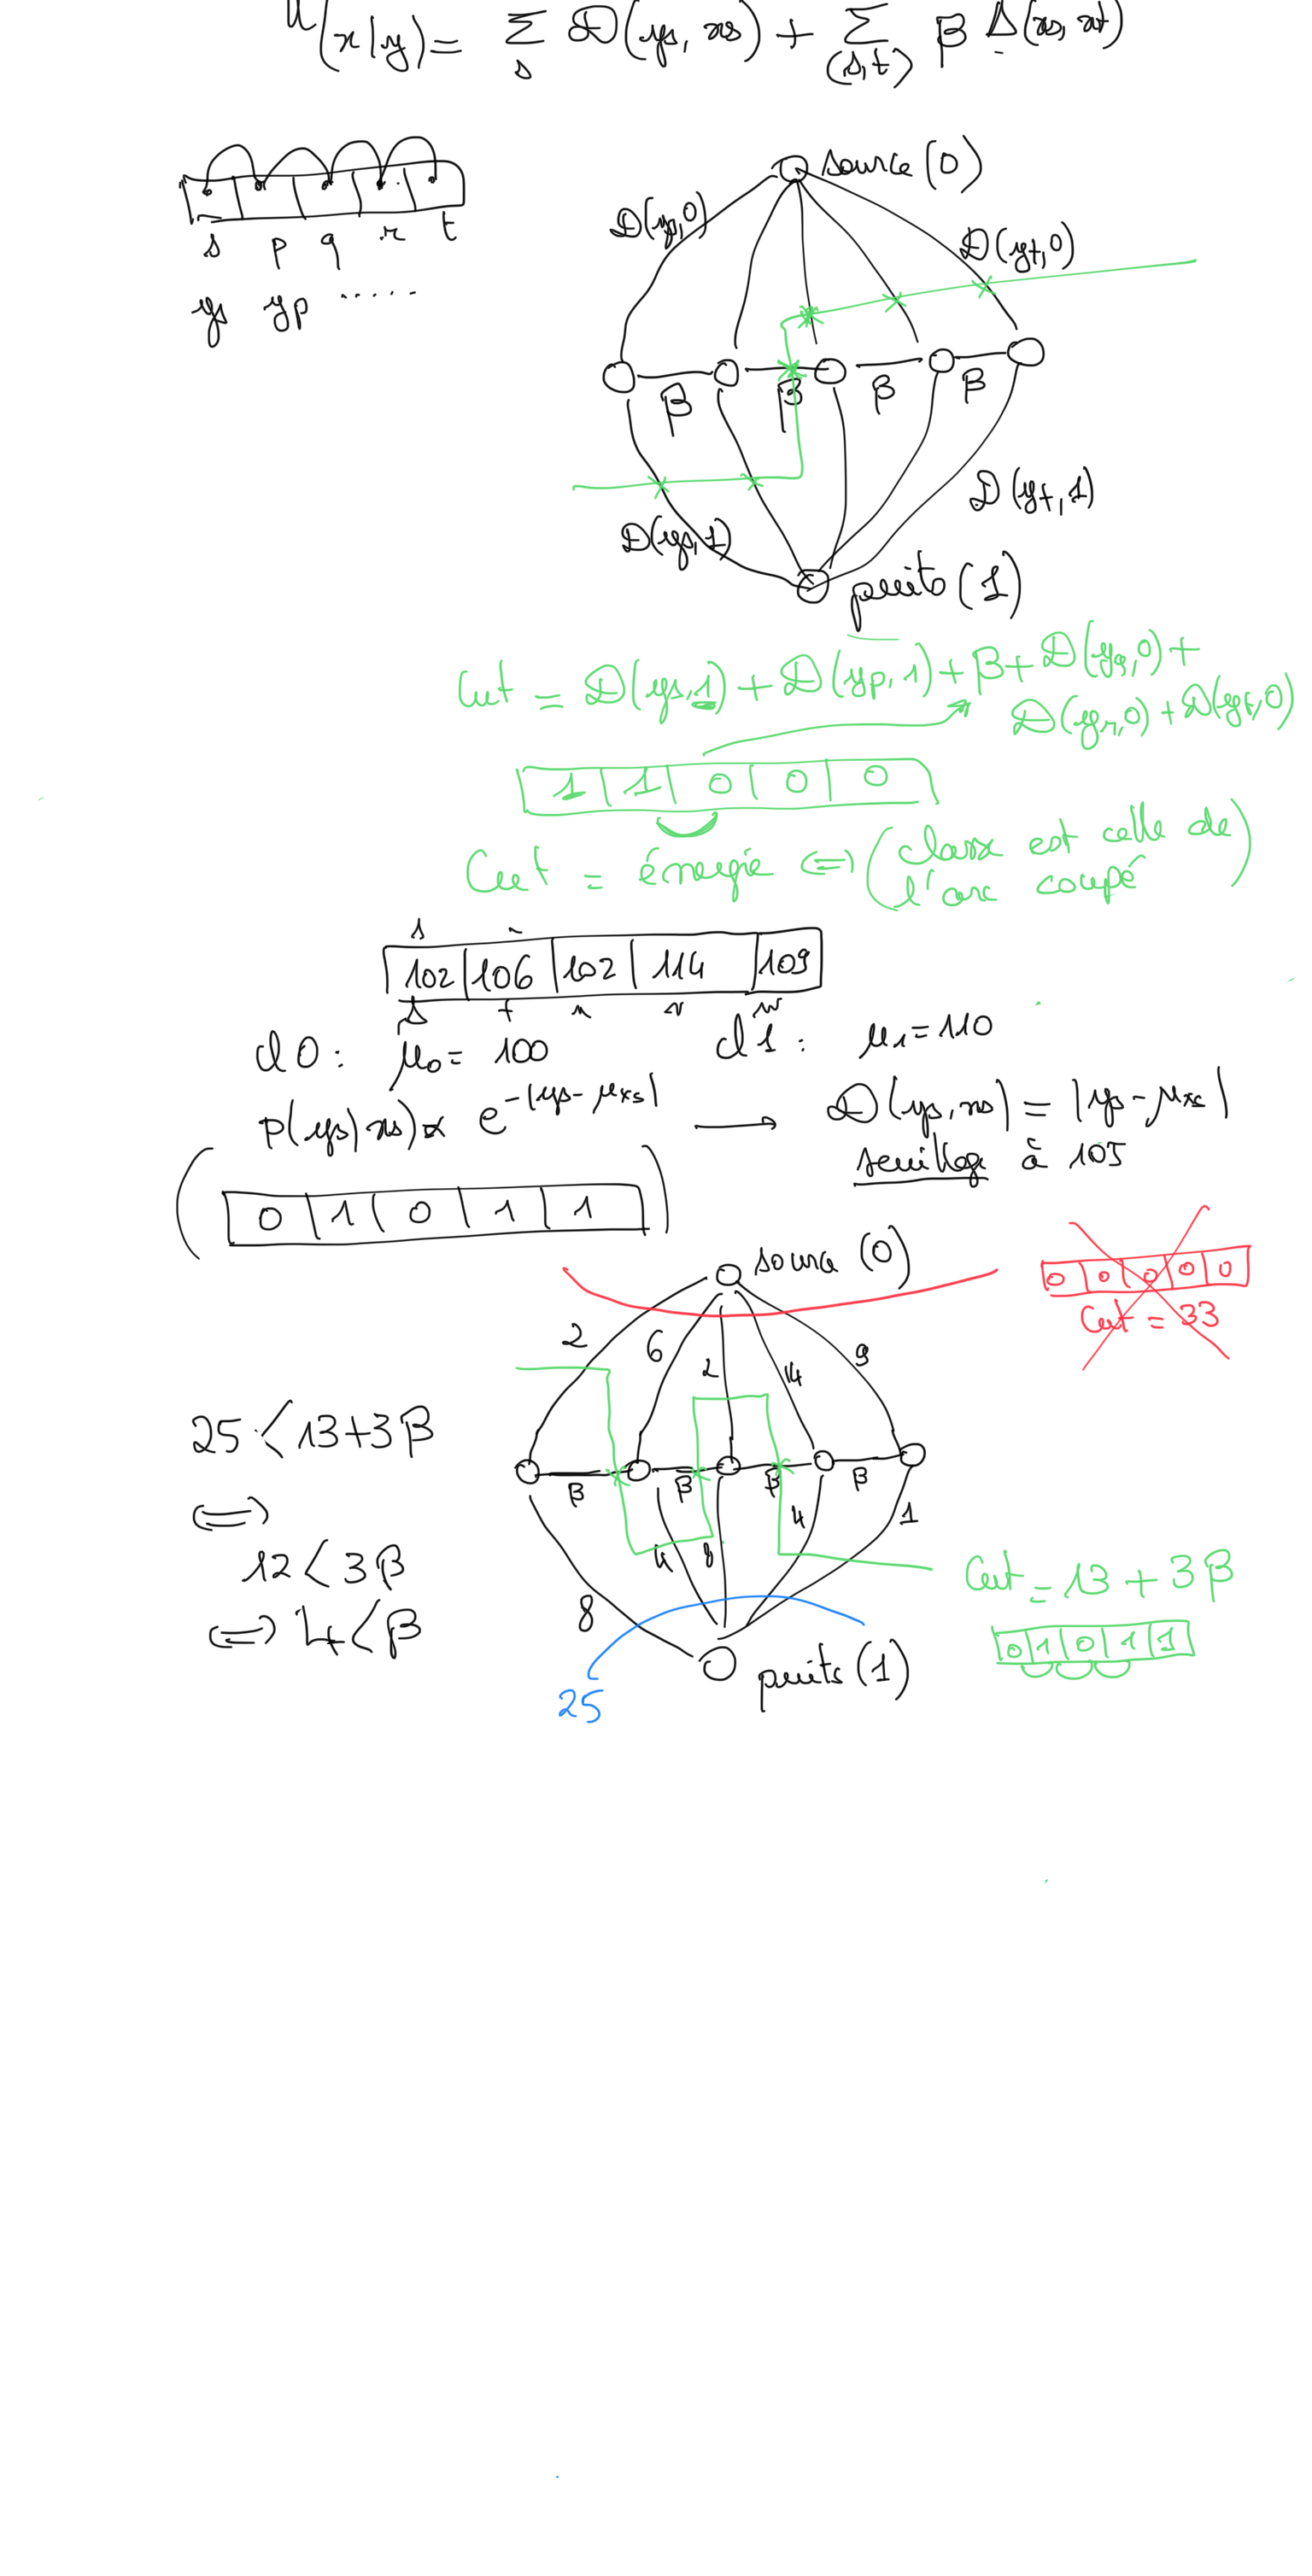 U(x|y) = Σ_s D(ys, xs) + Σ_(s,t) β Δ(xs, xt)
s p q r t
ys yp .....
source (0)
D(ys,0)
D(yt,0)
β β β β
D(ys,1)
D(yt,1)
puits (1)
Cut = D(ys,1) + D(yp,1) + β + D(yq,0) +
D(yr,0) + D(yt,0)
1 | 1 | 0 | 0 | 0
Cut = énergie ⟺ (classe est celle de
l'arc coupé)
s
102 | 106 | 102 | 114 | 109
s t u v w
cl 0 : μ0 = 100 cl 1 : μ1 = 110
p(ys|xs) ∝ e^-|ys-μxs| → D(ys,xs) = |ys-μxs|
seuillage à 105
( 0 | 1 | 0 | 1 | 1 )
source (0)
0 | 0 | 0 | 0 | 0
Cut = 33
2 6 2 14 9
25 < 13+3β
β β β β
⟺
4 1
12 < 3β
4 8
Cut = 13 + 3β
⟺ 4 < β
8
0 | 1 | 0 | 1 | 1
puits (1)
25